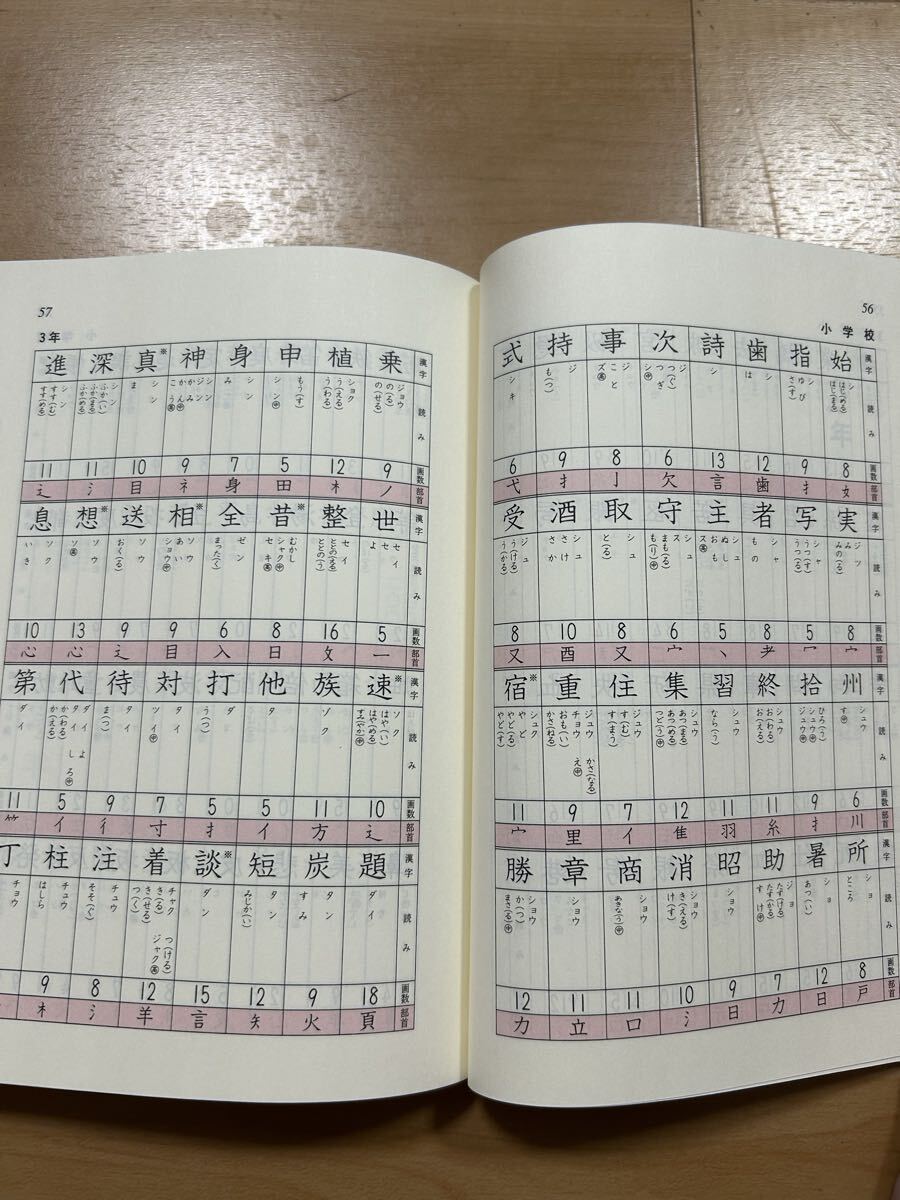 56
小学校
漢字 始 指 歯 詩 次 事 持 式
読み
シ はじ(める) はじ(まる)
シ ゆび さ(す)
シ は
シ
ジ シ㊥ つ(ぐ) つぎ
ジ ズ㊤ こと
ジ も(つ)
シキ
画数 8 9 12 13 6 8 9 6
部首 女 扌 歯 言 欠 亅 扌 弋
漢字 実 写 者 主 守 取 酒 受
読み
ジツ み みの(る)
シャ うつ(す) うつ(る)
シャ もの
シュ ス高 ぬし おも
シュ ス まも(る) も(り)中
シュ と(る)
シュ さけ さか
ジュ う(ける) う(かる)
画数 8 5 8 5 6 8 10 8
部首 宀 冖 耂 丶 宀 又 酉 又
漢字 州 拾 終 習 集 住 重 宿※
読み
シュウ す中
シュウ中 ジュウ中 ひろ(う)
シュウ お(わる) お(える)
シュウ なら(う)
シュウ あつ(まる) あつ(める) つど(う)中
ジュウ す(む) す(まう)
ジュウ チョウ え中 おも(い) かさ(ねる) かさ(なる)
シュク やど やど(る) やど(す)
画数 6 9 11 11 12 7 9 11
部首 川 扌 糸 羽 隹 イ 里 宀
漢字 所 暑 助 昭 消 商 章 勝
読み
ショ ところ
ショ あつ(い)
ジョ たす(ける) たす(かる) すけ中
ショウ
ショウ き(える) け(す)
ショウ あきな(う)中
ショウ
ショウ か(つ) まさ(る)中
画数 8 12 7 9 10 11 11 12
部首 戸 日 力 日 氵 口 立 力
57
3年
漢字 乗 植 申 身 神 真※ 深 進
読み
ジョウ の(る) の(せる)
ショク う(える) う(わる)
シン中 もう(す)
シン み
シン ジン かみ かん中 こう高
シン ま
シン ふか(い) ふか(まる) ふか(める)
シン すす(む) すす(める)
画数 9 12 5 7 9 10 11 11
部首 ノ 木 田 身 ネ 目 氵 辶
漢字 世 整 昔※ 全 相※ 送 想※ 息
読み
セイ セ よ
セイ ととの(える) ととの(う)
セキ高 シャク中 むかし
ゼン まった(く)
ソウ ショウ中 あい
ソウ おく(る)
ソウ ソ高
ソク いき
画数 5 16 8 6 9 9 13 10
部首 一 攵 日 入 目 辶 心 心
漢字 速※ 族 他 打 対 待 代 第
読み
ソク はや(い) はや(める) すみ(やか)中
ゾク
タ
ダ う(つ)
タイ ツイ中
タイ ま(つ)
ダイ タイ か(わる) か(える) よ しろ中
ダイ
画数 10 11 5 5 7 9 5 11
部首 辶 方 イ 扌 寸 彳 イ 竹
漢字 題 炭 短 談※ 着 注 柱 丁
読み
ダイ
タン すみ
タン みじか(い)
ダン
チャク ジャク高 き(る) き(せる) つ(く) つ(ける)
チュウ そそ(ぐ)
チュウ はしら
チョウ
画数 18 9 12 15 12 8 9
部首 頁 火 矢 言 羊 氵 木